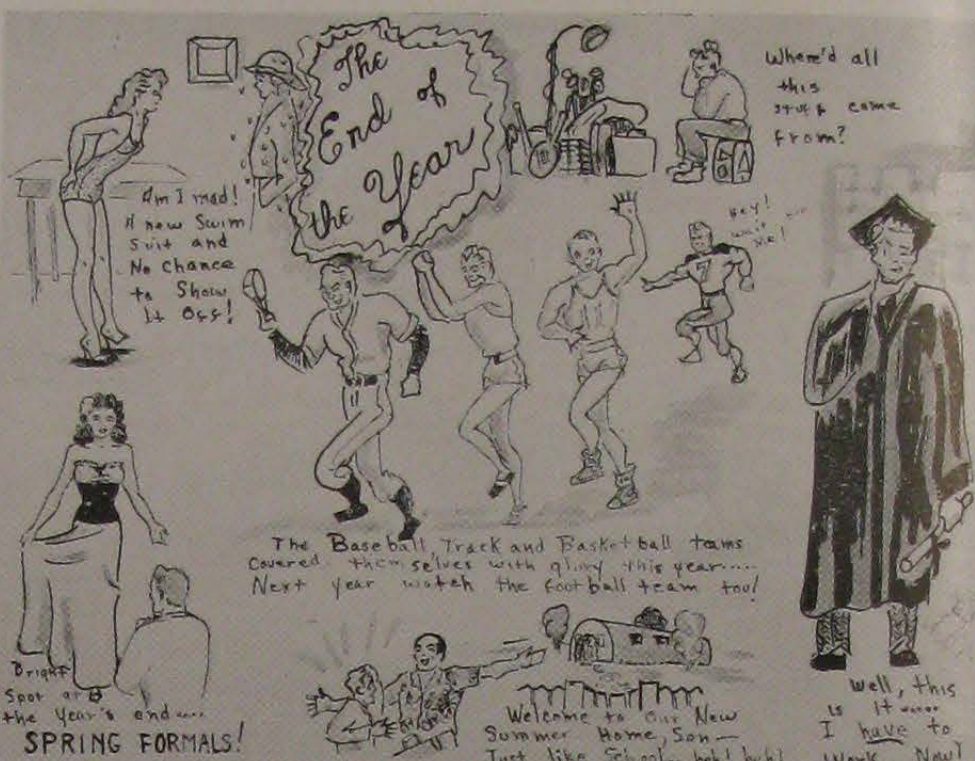 The
End of
the Year
Where'd all
this
stuff come
from?
Am I mad!
A new Swim
Suit and
No Chance
to Show
It Off!
Hey!
wait
Me!
7
11
11
The Baseball, Track and Basketball teams
Covered themselves with glory this year.....
Next year watch the football team too!
Bright
Spot at
the Year's end....
SPRING FORMALS!
Welcome to Our New
Summer Home, Son—
Just like School, heh! heh!
Well, this
is it ....
I have to
Work Now!